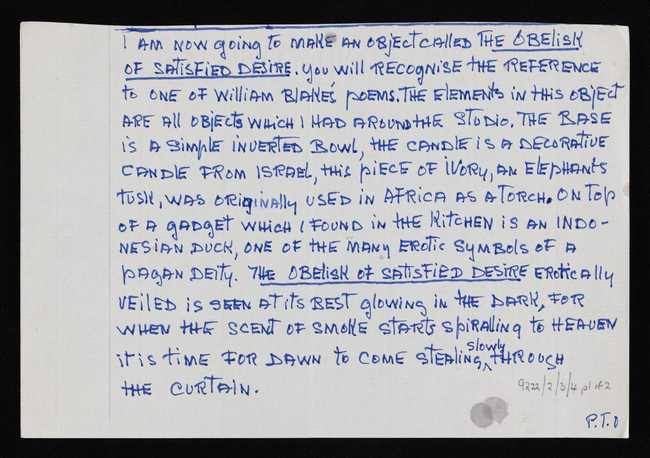 I AM NOW going to MAKE AN OBJECT CALLED THE OBELISK
OF SATISFIED DESIRE. YOU WILL RECOGNISE THE REFERENCE
to ONE OF WILLIAM BLAKE'S POEMS. THE ELEMENTS IN THIS OBJECT
ARE ALL OBJECTS WHICH I HAD AROUND THE STUDIO. THE BASE
IS A SIMPLE INVERTED BOWL, THE CANDLE IS A DECORATIVE
CANDLE FROM ISRAEL, THIS PIECE OF IVORY, AN ELEPHANTS
TUSK, WAS ORIGINALLY USED IN AFRICA AS A TORCH. ON TOP
OF A GADGET WHICH I FOUND IN THE KITCHEN IS AN INDO-
NESIAN DUCK, ONE OF THE MANY EROTIC SYMBOLS OF A
PAGAN DEITY. THE OBELISK OF SATISFIED DESIRE EROTICALLY
VEILED IS SEEN AT ITS BEST GLOWING IN THE DARK, FOR
WHEN THE SCENT OF SMOKE STARTS SPIRALLING TO HEAVEN
IT IS TIME FOR DAWN TO COME STEALING SLOWLY THROUGH
THE CURTAIN.
9222/2/3/4 p1 of 2
P.T.O